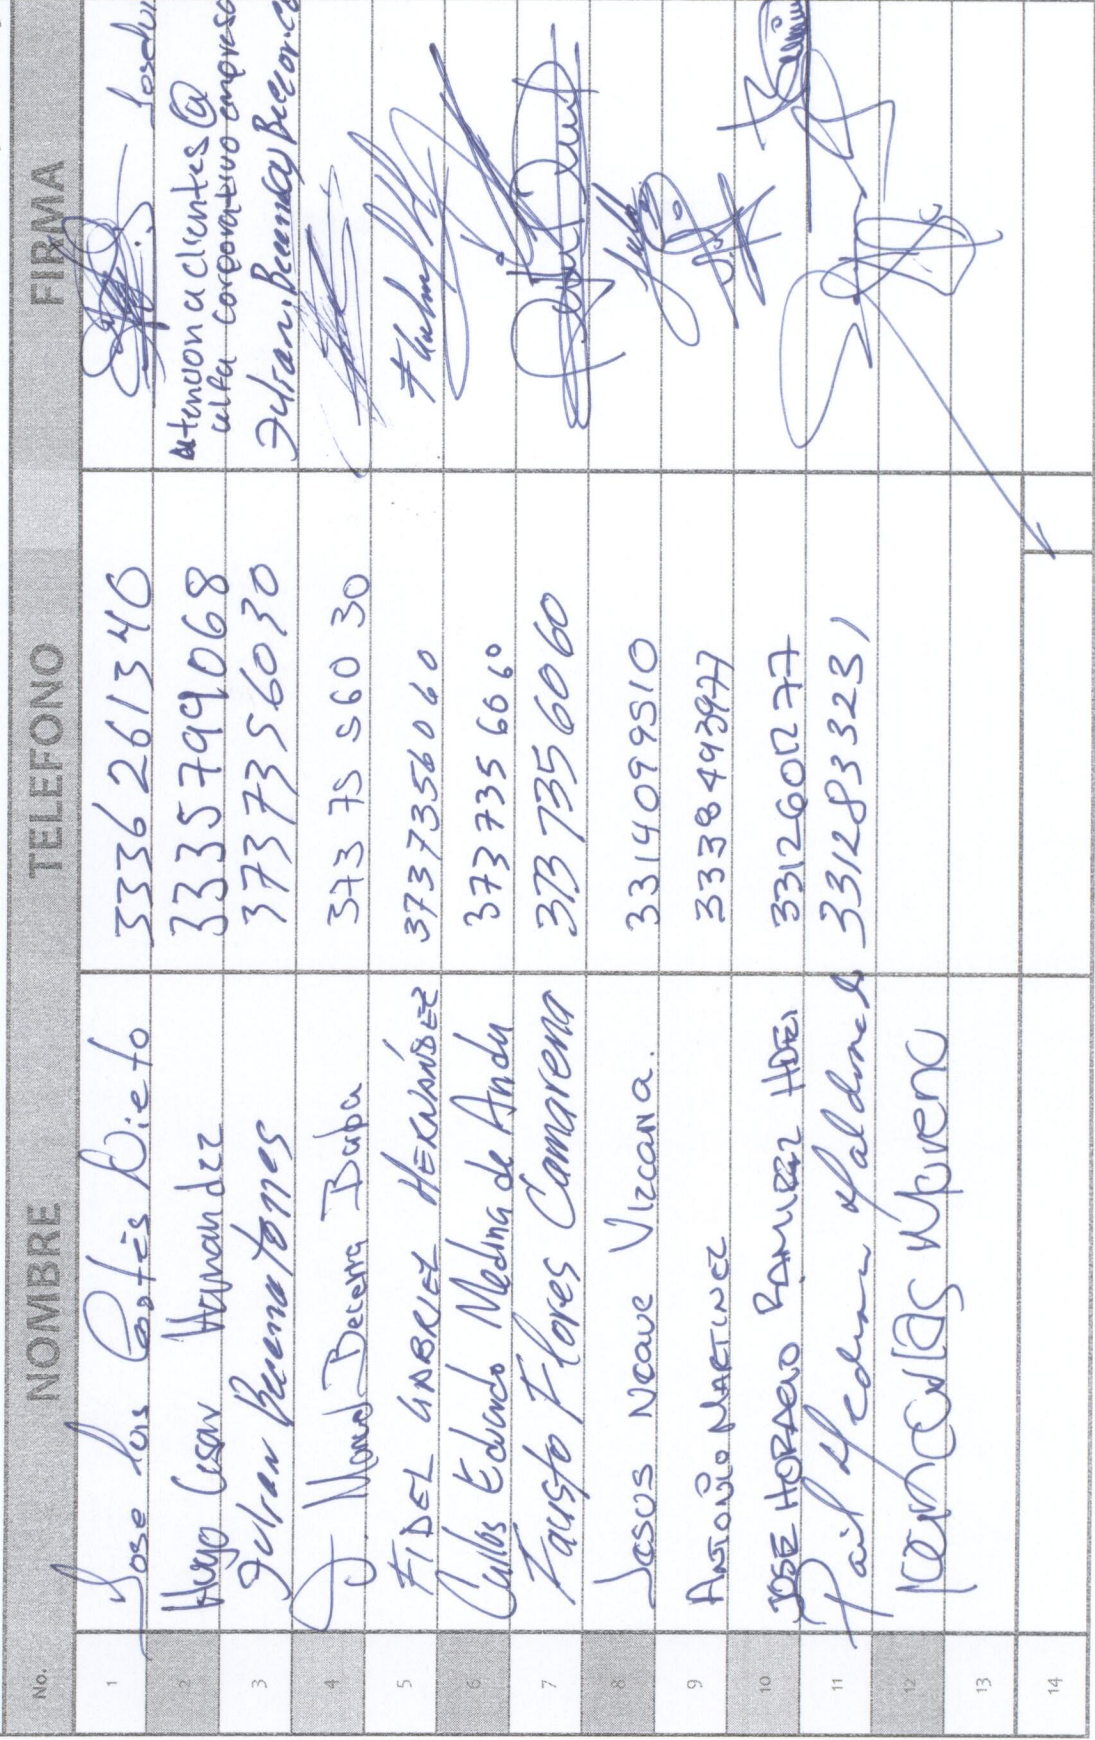 No. NOMBRE TELEFONO FIRMA
1 Jose Luis Cortés Nieto 3336261340
2 Hugo Cesar Hernandez 3335799068 Atencion a clientes@
alfa corporativo empresa
3 Julian Becerra Torres 3737356030 Julian.Becerra
4 J. Manuel Becerra Barba 373 75 560 30
5 FIDEL GABRIEL HERNÁNDEZ 3737356060
6 Carlos Eduardo Medina de Anda 3737356060
7 Fausto Flores Camarena 373 735 6060
8 Jesus Neave Vizcarra. 3314099510
9 ANTONIO MARTINEZ 3338493977
10 JOSE HORACIO RAMIREZ HDEZ 3312601277
11 Medina Maldonado 3312833231
12
13
14